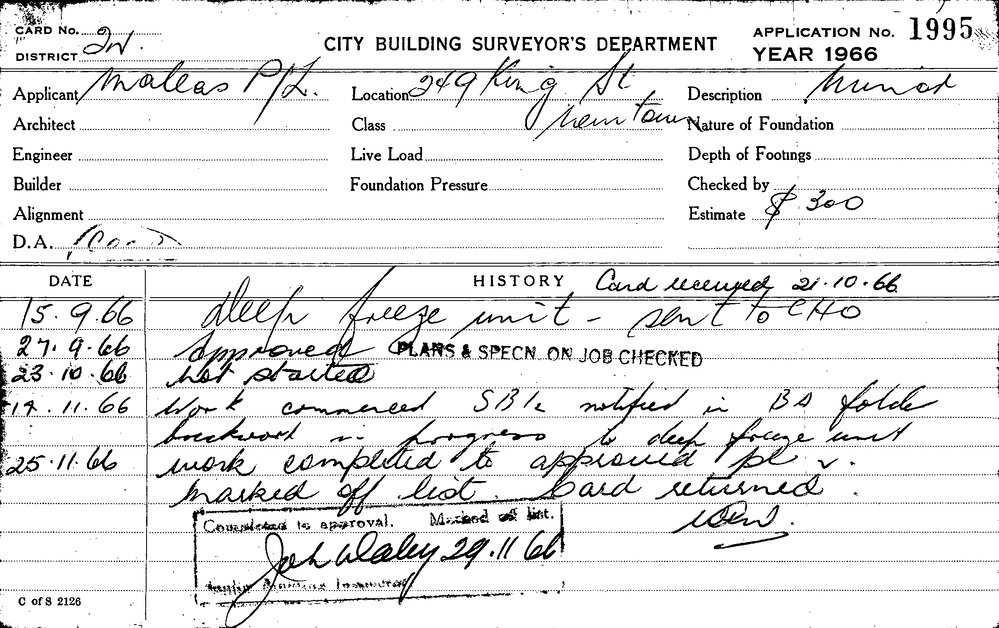 CARD No. 2W.
DISTRICT
CITY BUILDING SURVEYOR'S DEPARTMENT
APPLICATION No. 1995
YEAR 1966
Applicant Maleas P/L.
Location 249 King St
Newtown
Description Minor
Architect
Class
Nature of Foundation
Engineer
Live Load
Depth of Footings
Builder
Foundation Pressure
Checked by
Alignment
Estimate $ 300
D.A.
DATE
HISTORY Card received 21.10.66
15.9.66 Deep freeze unit - sent to CHO
27.9.66 Approved PLANS & SPECN. ON JOB CHECKED
23.10.66 Not started
14.11.66 Work commenced notified in BS folder
brickwork in progress to deep freeze unit
25.11.66 work completed to approved pl
marked off list. Card returned.
Completed to approval. Marked off list.
29.11.66
Inspector
C of S 2126